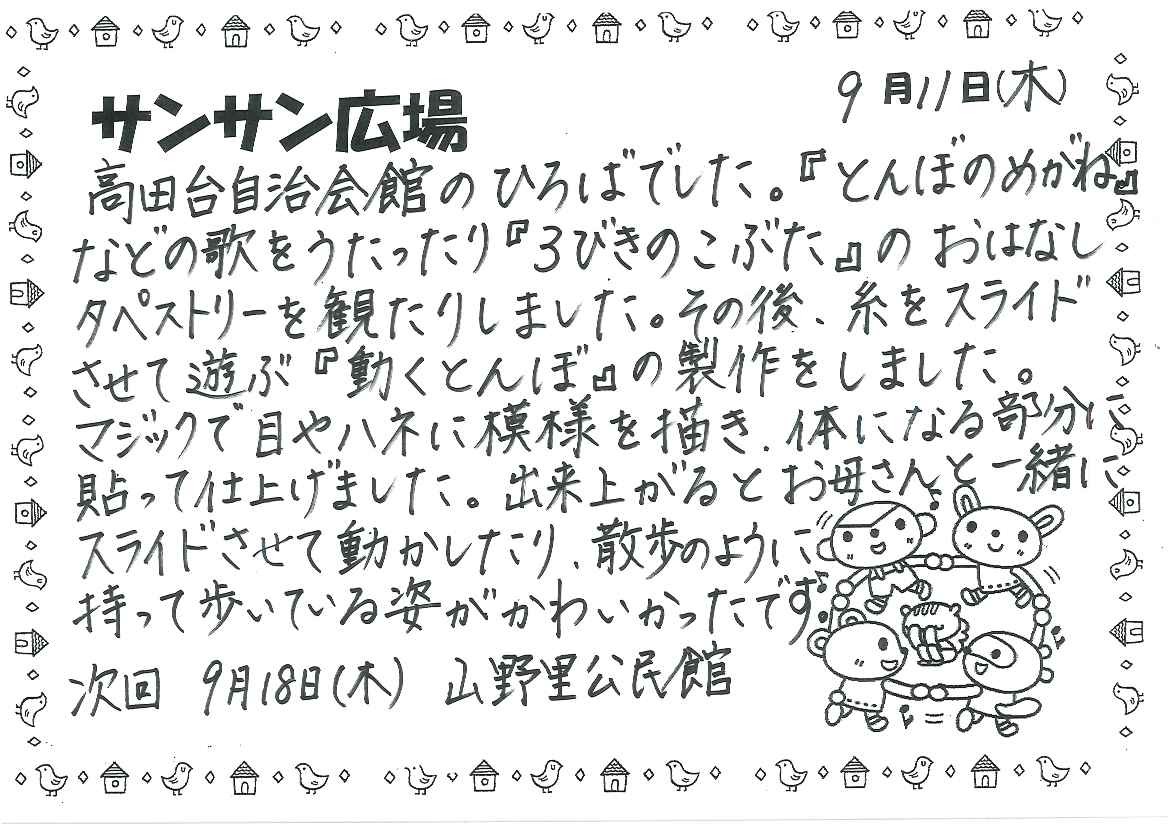 9月11日(木)
サンサン広場
高田台自治会館のひろばでした。『とんぼのめがね』
などの歌をうたったり『3びきのこぶた』のおはなし
タペストリーを観たりしました。その後、糸をスライド
させて遊ぶ『動くとんぼ』の製作をしました。
マジックで目やハネに模様を描き、体になる部分に
貼って仕上げました。出来上がるとお母さんと一緒に
スライドさせて動かしたり、散歩のように
持って歩いている姿がかわいかったです
次回 9月18日(木) 山野里公民館